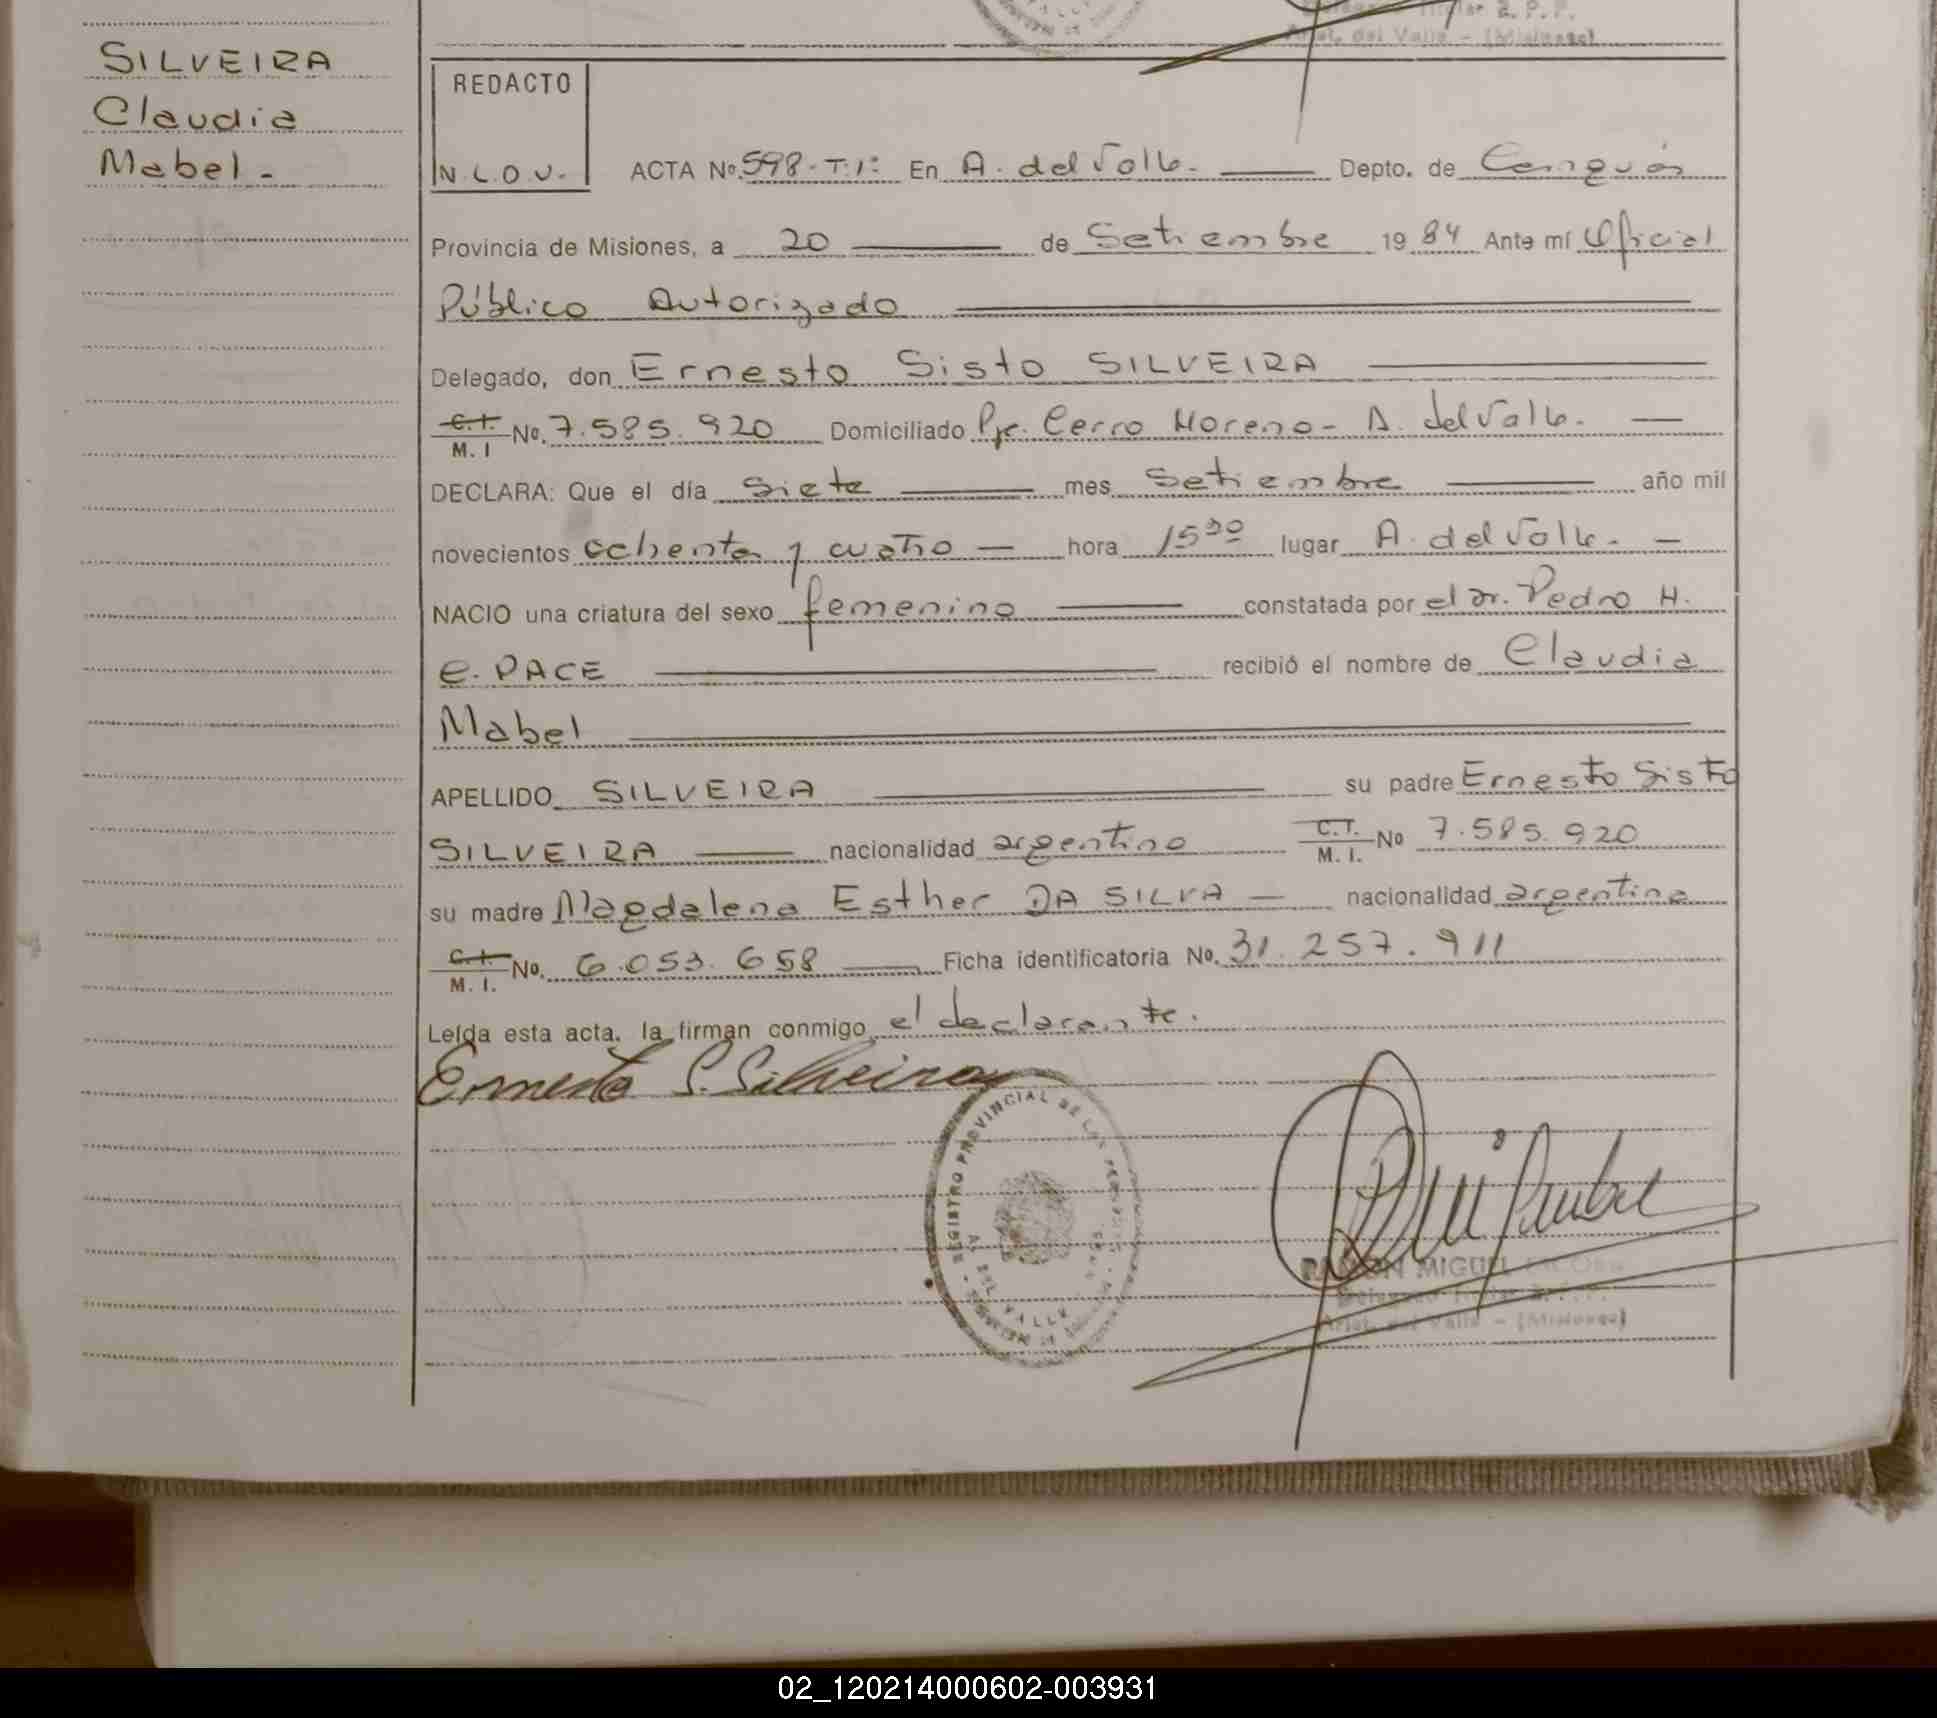 SILVEIRA
Claudia
Mabel -
Delegado Titular R. P. P.
Arist. del Valle - (Misiones)
REDACTO
N.L.O.V.
ACTA No. 598-T.1º En A. del Valle. Depto. de Cainguás
Provincia de Misiones, a 20 de Setiembre 1984 Ante mí Oficial
Público Autorizado
Delegado, don Ernesto Sisto SILVEIRA
C.I. M.I No. 7.585.920 Domiciliado Pje. Cerro Moreno - A. del Valle.
DECLARA: Que el día siete mes setiembre año mil
novecientos ochenta y cuatro hora 15³⁰ lugar A. del Valle.
NACIO una criatura del sexo femenino constatada por el Dr. Pedro H.
C. PACE recibió el nombre de Claudia
Mabel
APELLIDO SILVEIRA su padre Ernesto Sisto
SILVEIRA nacionalidad argentino C.I. M.I. No 7.585.920
su madre Magdalena Esther DA SILVA nacionalidad argentina
C.I. M.I. No. 6.053.658 Ficha identificatoria No. 31.257.911
Leída esta acta, la firman conmigo el declarante.
Ernesto S. Silveira
REGISTRO PROVINCIAL DE LAS PERSONAS
A. DEL VALLE
RAMON MIGUEL
Delegado Titular R. P. P.
Arist. del Valle - (Misiones)
02_120214000602-003931